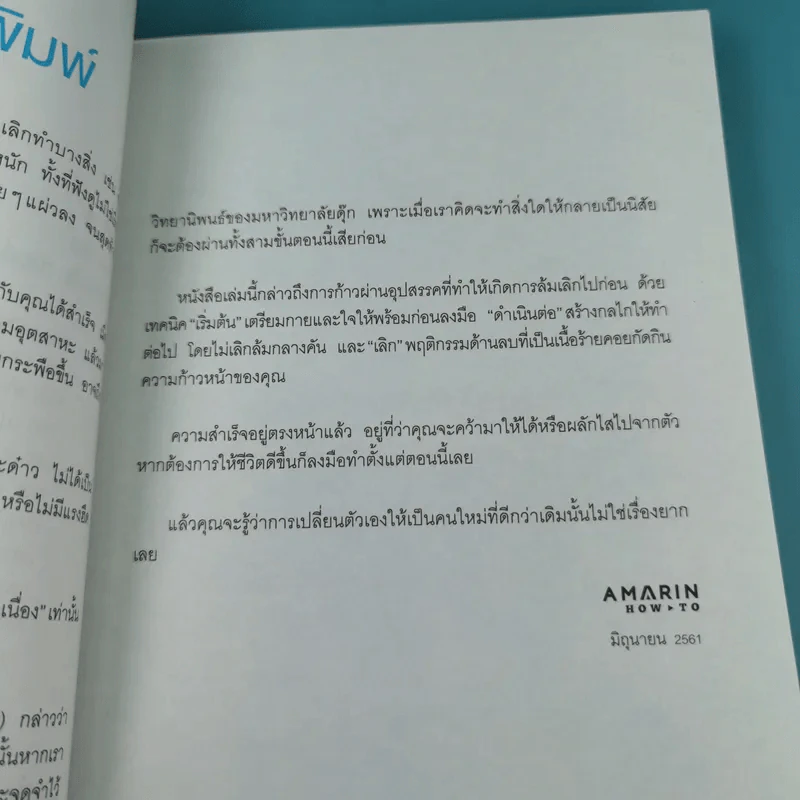 พิมพ์
เลิกทำบางสิ่ง เช่น
ทั้งที่ฟังดูไม่ใช่
ๆ แผ่วลง จนสุด
กับคุณได้สำเร็จ
อุตสาหะ แล้ว
กระพือขึ้น อาจ
ไม่ได้เป็น
หรือไม่มีแรงยึด
เนื่อง" เท่านั้น
) กล่าวว่า
นั้นหากเรา
จะจดจำไว้
วิทยานิพนธ์ของมหาวิทยาลัยดุ๊ก เพราะเมื่อเราคิดจะทำสิ่งใดให้กลายเป็นนิสัย
ก็จะต้องผ่านทั้งสามขั้นตอนนี้เสียก่อน
หนังสือเล่มนี้กล่าวถึงการก้าวผ่านอุปสรรคที่ทำให้เกิดการล้มเลิกไปก่อน ด้วย
เทคนิค "เริ่มต้น" เตรียมกายและใจให้พร้อมก่อนลงมือ "ดำเนินต่อ" สร้างกลไกให้ทำ
ต่อไป โดยไม่เลิกล้มกลางคัน และ "เลิก" พฤติกรรมด้านลบที่เป็นเนื้อร้ายคอยกัดกิน
ความก้าวหน้าของคุณ
ความสำเร็จอยู่ตรงหน้าแล้ว อยู่ที่ว่าคุณจะคว้ามาให้ได้หรือผลักไสไปจากตัว
หากต้องการให้ชีวิตดีขึ้นก็ลงมือทำตั้งแต่ตอนนี้เลย
แล้วคุณจะรู้ว่าการเปลี่ยนตัวเองให้เป็นคนใหม่ที่ดีกว่าเดิมนั้นไม่ใช่เรื่องยาก
เลย
AMARIN
HOW TO
มิถุนายน 2561